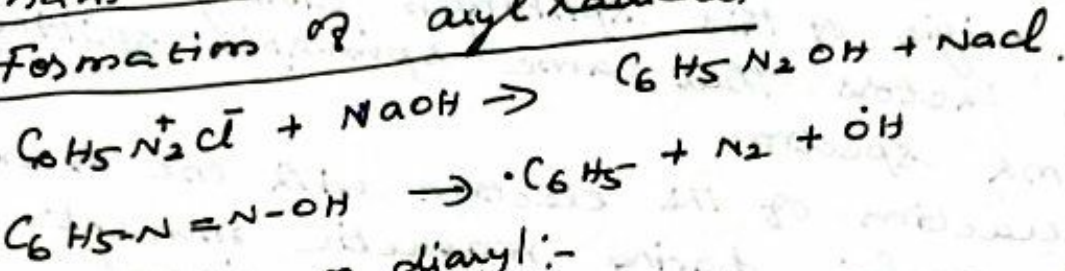 Formation of aryl
C6H5N2+Cl- + NaOH → C6H5N2OH + NaCl.
C6H5-N=N-OH → ·C6H5 + N2 + ȯH
diaryl:-